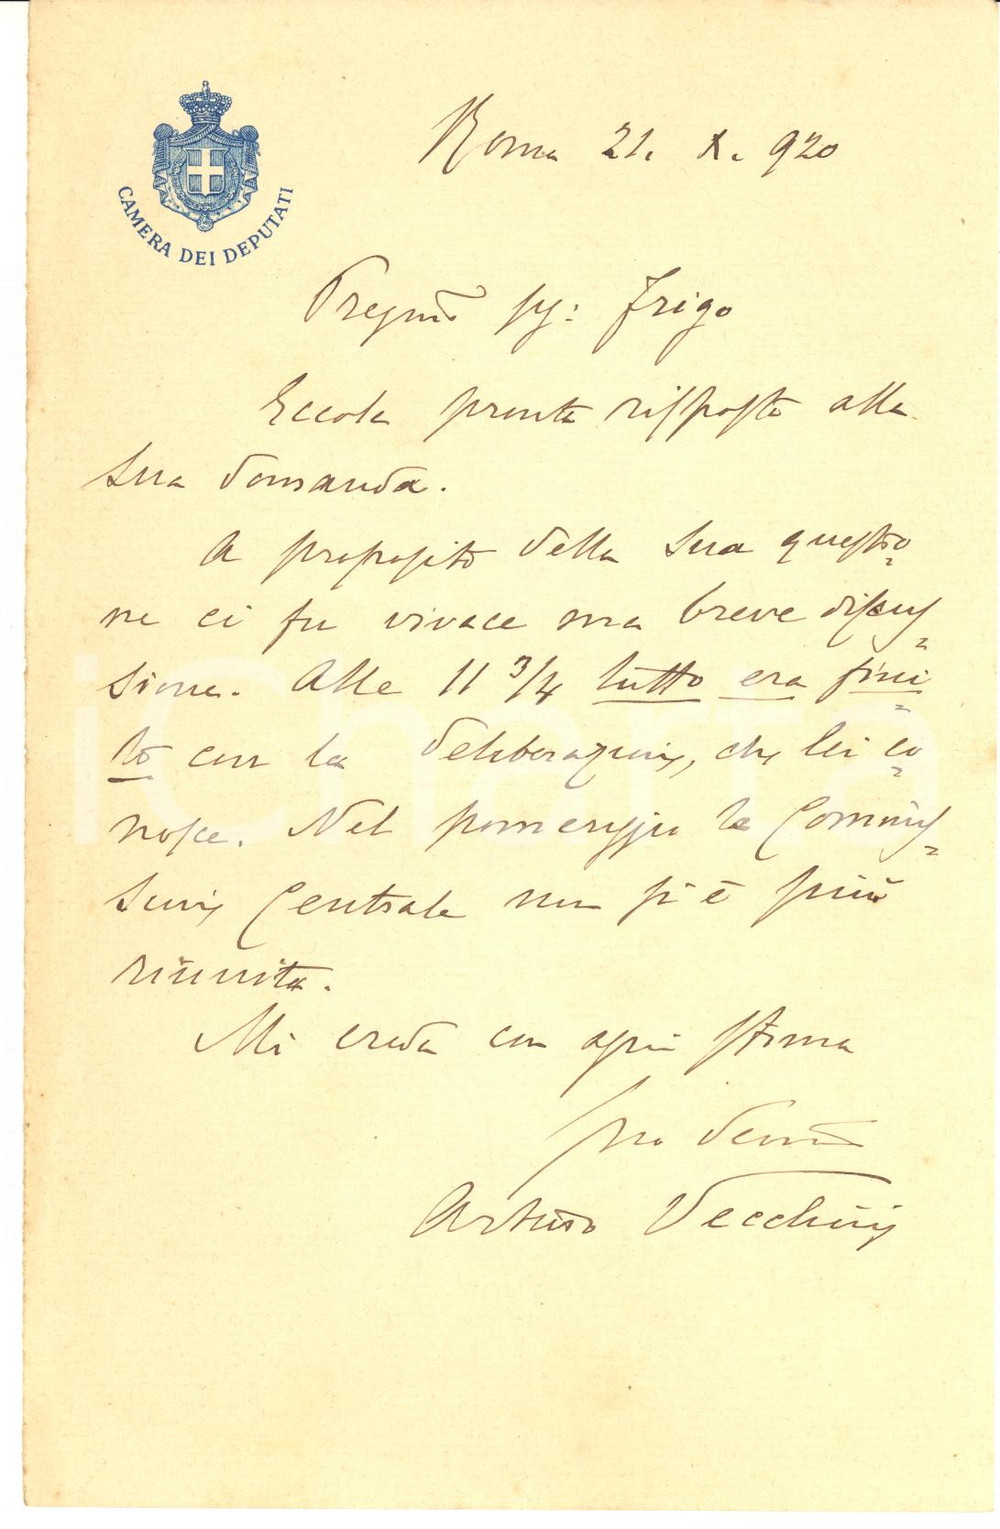 CAMERA DEI DEPUTATI
Roma 21. X. 920
Pregmo Sg: Frigo
Eccola pronta risposta alla
Sua domanda.
A proposito della Sua questio=
ne ci fu vivace ma breve discus=
sione. Alle 11 3/4 tutto era fini=
to con la deliberazione, che lei co=
nosce. Nel pomeriggio la Commis=
sione Centrale non si è più
riunita.
Mi creda con ogni stima
Suo devmo
Arturo Vecchini